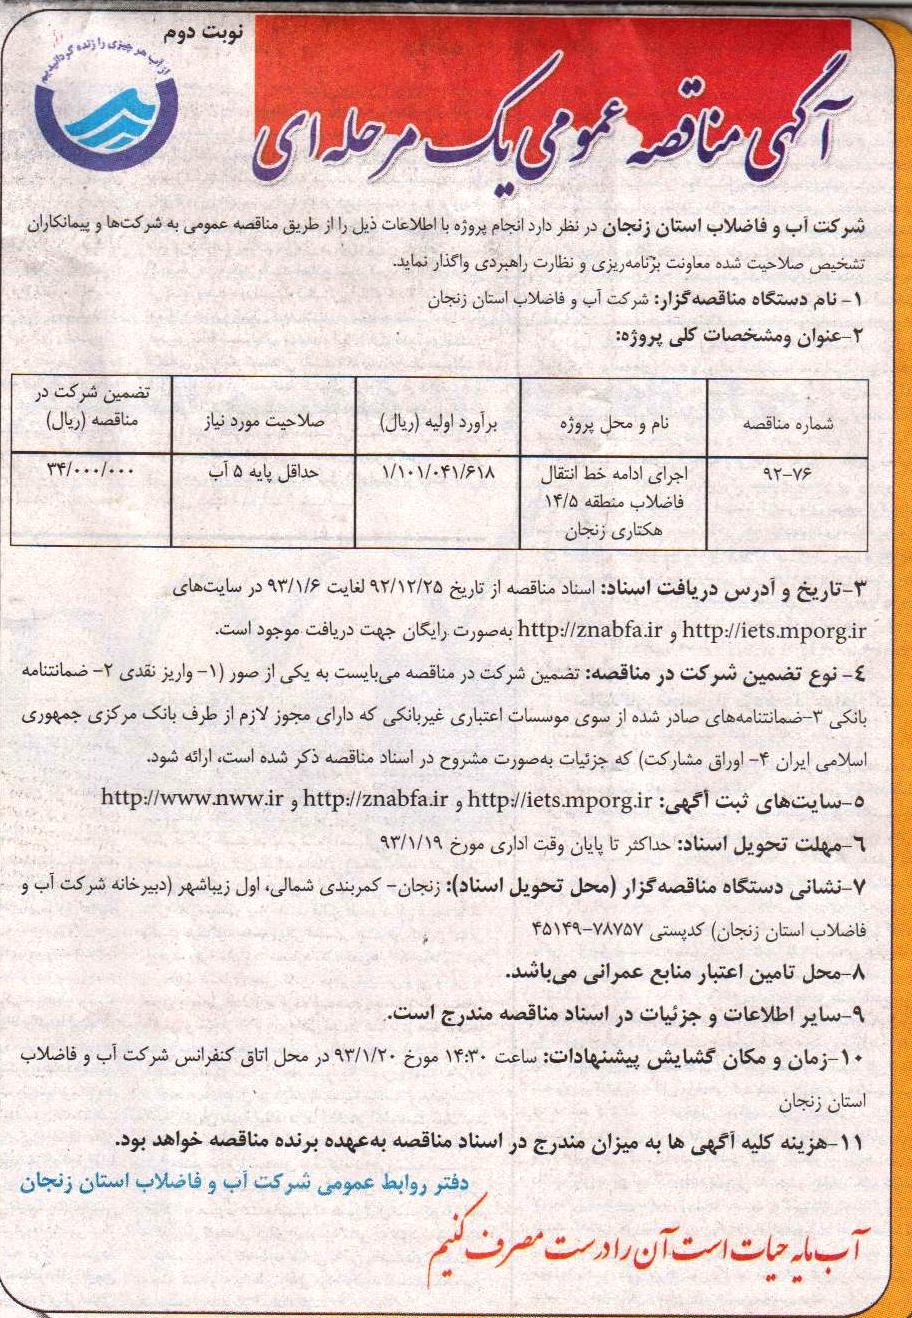 نوبت دوم
از آب هر چیزی را زنده گردانیدیم
آگهی مناقصه عمومی یک مرحله ای
شرکت آب و فاضلاب استان زنجان در نظر دارد انجام پروژه با اطلاعات ذیل را از طریق مناقصه عمومی به شرکت‌ها و پیمانکاران
تشخیص صلاحیت شده معاونت برنامه‌ریزی و نظارت راهبردی واگذار نماید.
۱- نام دستگاه مناقصه‌گزار: شرکت آب و فاضلاب استان زنجان
۲-عنوان ومشخصات کلی پروژه:
شماره مناقصه
نام و محل پروژه
برآورد اولیه (ریال)
صلاحیت مورد نیاز
تضمین شرکت در
مناقصه (ریال)
۹۲-۷۶
اجرای ادامه خط انتقال
فاضلاب منطقه ۱۴/۵
هکتاری زنجان
۱/۱۰۱/۰۴۱/۶۱۸
حداقل پایه ۵ آب
۳۴/۰۰۰/۰۰۰
۳-تاریخ و آدرس دریافت اسناد: اسناد مناقصه از تاریخ ۹۲/۱۲/۲۵ لغایت ۹۳/۱/۶ در سایت‌های
http://iets.mporg.ir و http://znabfa.ir به‌صورت رایگان جهت دریافت موجود است.
۴- نوع تضمین شرکت در مناقصه: تضمین شرکت در مناقصه می‌بایست به یکی از صور (۱- واریز نقدی ۲- ضمانتنامه
بانکی ۳-ضمانتنامه‌های صادر شده از سوی موسسات اعتباری غیربانکی که دارای مجوز لازم از طرف بانک مرکزی جمهوری
اسلامی ایران ۴- اوراق مشارکت) که جزئیات به‌صورت مشروح در اسناد مناقصه ذکر شده است، ارائه شود.
۵-سایت‌های ثبت آگهی: http://iets.mporg.ir و http://znabfa.ir و http://www.nww.ir
۶-مهلت تحویل اسناد: حداکثر تا پایان وقت اداری مورخ ۹۳/۱/۱۹
۷-نشانی دستگاه مناقصه‌گزار (محل تحویل اسناد): زنجان- کمربندی شمالی، اول زیباشهر (دبیرخانه شرکت آب و
فاضلاب استان زنجان) کدپستی ۷۸۷۵۷-۴۵۱۴۹
۸-محل تامین اعتبار منابع عمرانی می‌باشد.
۹-سایر اطلاعات و جزئیات در اسناد مناقصه مندرج است.
۱۰-زمان و مکان گشایش پیشنهادات: ساعت ۱۴:۳۰ مورخ ۹۳/۱/۲۰ در محل اتاق کنفرانس شرکت آب و فاضلاب
استان زنجان
۱۱-هزینه کلیه آگهی ها به میزان مندرج در اسناد مناقصه به‌عهده برنده مناقصه خواهد بود.
دفتر روابط عمومی شرکت آب و فاضلاب استان زنجان
آب مایه حیات است آن را درست مصرف کنیم